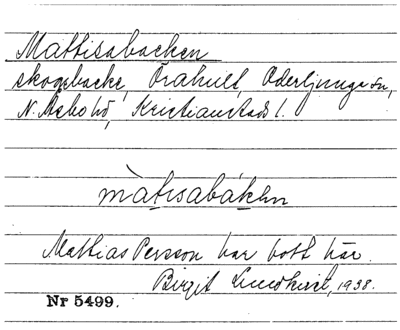 Mattisabacken
skogsbacke, Örahult, Oderljunga sn,
N. Åsbo hd, Kristianstads l.
màtisabáken
Mattias Persson har bott här.
Birgit Lundkvist, 1938.
Nr 5499.